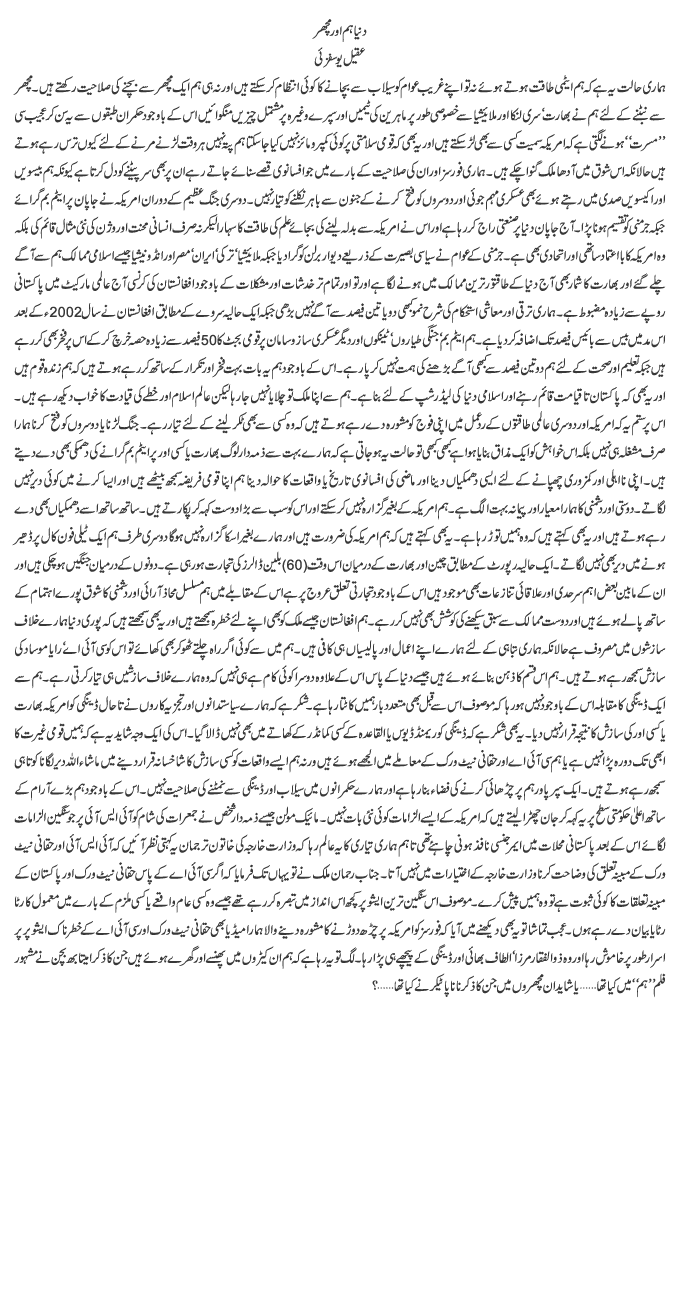 دنیا ہم اور مچھر
عقیل یوسفزئی
ہماری حالت یہ ہے کہ ہم ایٹمی طاقت ہوتے ہوئے نہ تو اپنے غریب عوام کو سیلاب سے بچانے کا کوئی انتظام کر سکتے ہیں اور نہ ہی ہم ایک مچھر سے بچنے کی صلاحیت رکھتے ہیں۔ مچھر
سے نمٹنے کے لئے ہم نے بھارت‘ سری لنکا اور ملائیشیا سے خصوصی طور پر ماہرین کی ٹیمیں اور سپرے وغیرہ پر مشتمل چیزیں منگوائیں اس کے باوجود حکمران طبقوں سے یہ سن کر عجیب سی
’’مسرت‘‘ ہونے لگتی ہے کہ امریکہ سمیت کسی سے بھی لڑ سکتے ہیں اور یہ بھی کہ قومی سلامتی پر کوئی کمپرومائز نہیں کیا جا سکتا ہم پتہ نہیں ہر وقت لڑنے مرنے کے لئے کیوں ترس رہے ہوتے
ہیں حالانکہ اس شوق میں آدھا ملک گنوا چکے ہیں۔ ہماری فورسز اور ان کی صلاحیت کے بارے میں جو افسانوی قصے سنائے جاتے رہے ان پر بھی سر پیٹنے کو دل کرتا ہے کیونکہ ہم بیسویں
اور اکیسویں صدی میں رہتے ہوئے بھی عسکری مہم جوئی اور دوسروں کو فتح کرنے کے جنون سے باہر نکلنے کو تیار نہیں۔ دوسری جنگ عظیم کے دوران امریکہ نے جاپان پر ایٹم بم گرائے
جبکہ جرمنی کو تقسیم ہونا پڑا آج جاپان دنیا پر صنعتی راج کر رہا ہے اور اس نے امریکہ سے بدلہ لینے کی بجائے علم کی طاقت کا سہارا لیکر نہ صرف انسانی محنت اور وژن کی نئی مثال قائم کی بلکہ
وہ امریکہ کا بااعتماد ساتھی اور اتحادی بھی ہے۔ جرمنی کے عوام نے سیاسی بصیرت کے ذریعے دیوار برلن کو گرا دیا جبکہ ملائیشیا‘ ترکی‘ ایران‘ مصر اور انڈونیشیا جیسے اسلامی ممالک ہم سے آگے
چلے گئے اور بھارت کا شمار بھی آج دنیا کے طاقتور ترین ممالک میں ہونے لگا ہے اور تو اور تمام تر خدشات اور مشکلات کے باوجود افغانستان کی کرنسی آج عالمی مارکیٹ میں پاکستانی
روپے سے زیادہ مضبوط ہے۔ ہماری ترقی اور معاشی استحکام کی شرح نمو کبھی دو یا تین فیصد سے آگے نہیں بڑھی جبکہ ایک حالیہ سروے کے مطابق افغانستان نے سال 2002ء کے بعد
اس مد میں بیس سے بائیس فیصد تک اضافہ کر دیا ہے۔ ہم ایٹم بم‘ جنگی طیاروں‘ ٹینکوں اور دیگر عسکری ساز و سامان پر قومی بجٹ کا 50 فیصد سے زیادہ حصہ خرچ کر کے اس پر فخر بھی کر رہے
ہیں جبکہ تعلیم اور صحت کے لئے ہم دو تین فیصد سے کبھی آگے بڑھنے کی ہمت نہیں کر پا رہے۔ اس کے باوجود ہم یہ بات بہت فخر اور تکرار کے ساتھ کر رہے ہوتے ہیں کہ ہم زندہ قوم ہیں
اور یہ بھی کہ پاکستان تا قیامت قائم رہنے اور اسلامی دنیا کی لیڈر شپ کے لئے بنا ہے۔ ہم سے اپنا ملک تو چلایا نہیں جا رہا لیکن عالم اسلام اور خطے کی قیادت کا خواب دیکھ رہے ہیں۔
اس پر ستم یہ کہ امریکہ اور دوسری عالمی طاقتوں کے ردعمل میں اپنی فوج کو مشورہ دے رہے ہوتے ہیں کہ وہ کسی سے بھی ٹکر لینے کے لئے تیار رہے۔ جنگ لڑنا یا دوسروں کو فتح کرنا ہمارا
صرف مشغلہ ہی نہیں بلکہ اس خواہش کو ایک مذاق بنایا ہوا ہے کبھی کبھی تو حالت یہ ہو جاتی ہے کہ ہمارے بہت سے ذمہ دار لوگ بھارت یا کسی اور پر ایٹم بم گرانے کی دھمکی بھی دے دیتے
ہیں۔ اپنی نااہلی اور کمزوری چھپانے کے لئے ایسی دھمکیاں دینا اور ماضی کی افسانوی تاریخ یا واقعات کا حوالہ دینا ہم اپنا قومی فریضہ سمجھ بیٹھے ہیں اور ایسا کرنے میں کوئی دیر نہیں
لگاتے۔ دوستی اور دشمنی کا ہمارا معیار اور پیمانہ بہت الگ ہے۔ ہم امریکہ کے بغیر گزارہ نہیں کر سکتے اور اس کو سب سے بڑا دوست کہہ کر پکارتے ہیں۔ ساتھ ساتھ اسے دھمکیاں بھی دے
رہے ہوتے ہیں اور یہ بھی کہتے ہیں کہ وہ ہمیں توڑ رہا ہے۔ یہ بھی کہتے ہیں کہ ہم امریکہ کی ضرورت ہیں اور ہمارے بغیر اسکا گزارہ نہیں ہوگا دوسری طرف ہم ایک ٹیلی فون کال پر ڈھیر
ہونے میں دیر بھی نہیں لگاتے۔ ایک حالیہ رپورٹ کے مطابق چین اور بھارت کے درمیان اس وقت (60) بلین ڈالرز کی تجارت ہو رہی ہے۔ دونوں کے درمیان جنگیں ہو چکی ہیں اور
ان کے مابین بعض اہم سرحدی اور علاقائی تنازعات بھی موجود ہیں اس کے باوجود تجارتی تعلق عروج پر ہے اس کے مقابلے میں ہم مسلسل محاذ آرائی اور دشمنی کا شوق پورے اہتمام کے
ساتھ پالے ہوئے ہیں اور دوست ممالک سے سبق سیکھنے کی کوشش بھی نہیں کر رہے۔ ہم افغانستان جیسے ملک کو بھی اپنے لئے خطرہ سمجھتے ہیں اور یہ بھی سمجھتے ہیں کہ پوری دنیا ہمارے خلاف
سازشوں میں مصروف ہے حالانکہ ہماری تباہی کے لئے ہمارے اپنے اعمال اور پالیسیاں ہی کافی ہیں۔ ہم میں سے کوئی اگر راہ چلتے ٹھوکر بھی کھائے تو اس کو سی آئی اے‘ را یا موساد کی
سازش سمجھ رہے ہوتے ہیں۔ ہم اس قسم کا ذہن بنائے ہوئے ہیں جیسے دنیا کے پاس اس کے علاوہ دوسرا کوئی کام ہے ہی نہیں کہ وہ ہمارے خلاف سازشیں ہی تیار کرتی رہے۔ ہم سے
ایک ڈینگی کا مقابلہ اس کے باوجود نہیں ہو رہا کہ موصوف اس سے قبل بھی متعدد بار ہمیں کاٹتا رہا ہے۔ شکر ہے کہ ہمارے سیاستدانوں اور تجزیہ کاروں نے تاحال ڈینگی کو امریکہ بھارت
یا کسی اور کی سازش کا نتیجہ قرار نہیں دیا۔ یہ بھی شکر ہے کہ ڈینگی کو ریمنڈ ڈیوس یا القاعدہ کے کسی کمانڈر کے کھاتے میں بھی نہیں ڈالا گیا۔ اس کی ایک وجہ شاید یہ ہے کہ ہمیں قومی غیرت کا
ابھی تک دورہ پڑا نہیں ہے یا ہم سی آئی اے اور حقانی نیٹ ورک کے معاملے میں الجھے ہوئے ہیں ورنہ ہم ایسے واقعات کو کسی سازش کا شاخسانہ قرار دینے میں ماشاء اللہ دیر لگانا کوتاہی
سمجھ رہے ہوتے ہیں۔ ایک سپر پاور ہم پر چڑھائی کرنے کی فضاء بنا رہا ہے اور ہمارے حکمرانوں میں سیلاب اور ڈینگی سے نمٹنے کی صلاحیت نہیں۔ اس کے باوجود ہم بڑے آرام کے
ساتھ اعلیٰ حکومتی سطح پر یہ کہہ کر جان چھڑا لیتے ہیں کہ امریکہ کے ایسے الزامات کوئی نئی بات نہیں۔ مائیک مولن جیسے ذمہ دار شخص نے جمعرات کی شام کو آئی ایس آئی پر جو سنگین الزامات
لگائے اس کے بعد پاکستانی محلات میں ایمرجنسی نافذ ہونی چاہئے تھی تاہم ہماری تیاری کا یہ عالم رہا کہ وزارت خارجہ کی خاتون ترجمان یہ کہتی نظر آئیں کہ آئی ایس آئی اور حقانی نیٹ
ورک کے مبینہ تعلق کی وضاحت کرنا وزارت خارجہ کے اختیارات میں نہیں آتا۔ جناب رحمان ملک نے تو یہاں تک فرمایا کہ اگر سی آئی اے کے پاس حقانی نیٹ ورک اور پاکستان کے
مبینہ تعلقات کا کوئی ثبوت ہے تو وہ ہمیں پیش کرے۔ موصوف اس سنگین ترین ایشو پر کچھ اس انداز میں تبصرہ کر رہے تھے جیسے وہ کسی عام واقعے یا کسی ملزم کے بارے میں معمول کا رٹا
رٹایا بیان دے رہے ہوں۔ عجب تماشا تو یہ بھی دیکھنے میں آیا کہ فورسز کو امریکہ پر چڑھ دوڑنے کا مشورہ دینے والا ہمارا میڈیا بھی حقانی نیٹ ورک اور سی آئی اے کے خطرناک ایشو پر پر
اسرار طور پر خاموش رہا اور وہ ذوالفقار مرزا‘ الطاف بھائی اور ڈینگی کے پیچھے ہی پڑا رہا۔ لگ تو یہ رہا ہے کہ ہم ان کیڑوں میں پھنسے اور گھرے ہوئے ہیں جن کا ذکر امیتابھ بچن نے مشہور
فلم ’’ہم‘‘ میں کیا تھا...... یا شاید ان مچھروں میں جن کا ذکر نانا پاٹیکر نے کیا تھا......؟